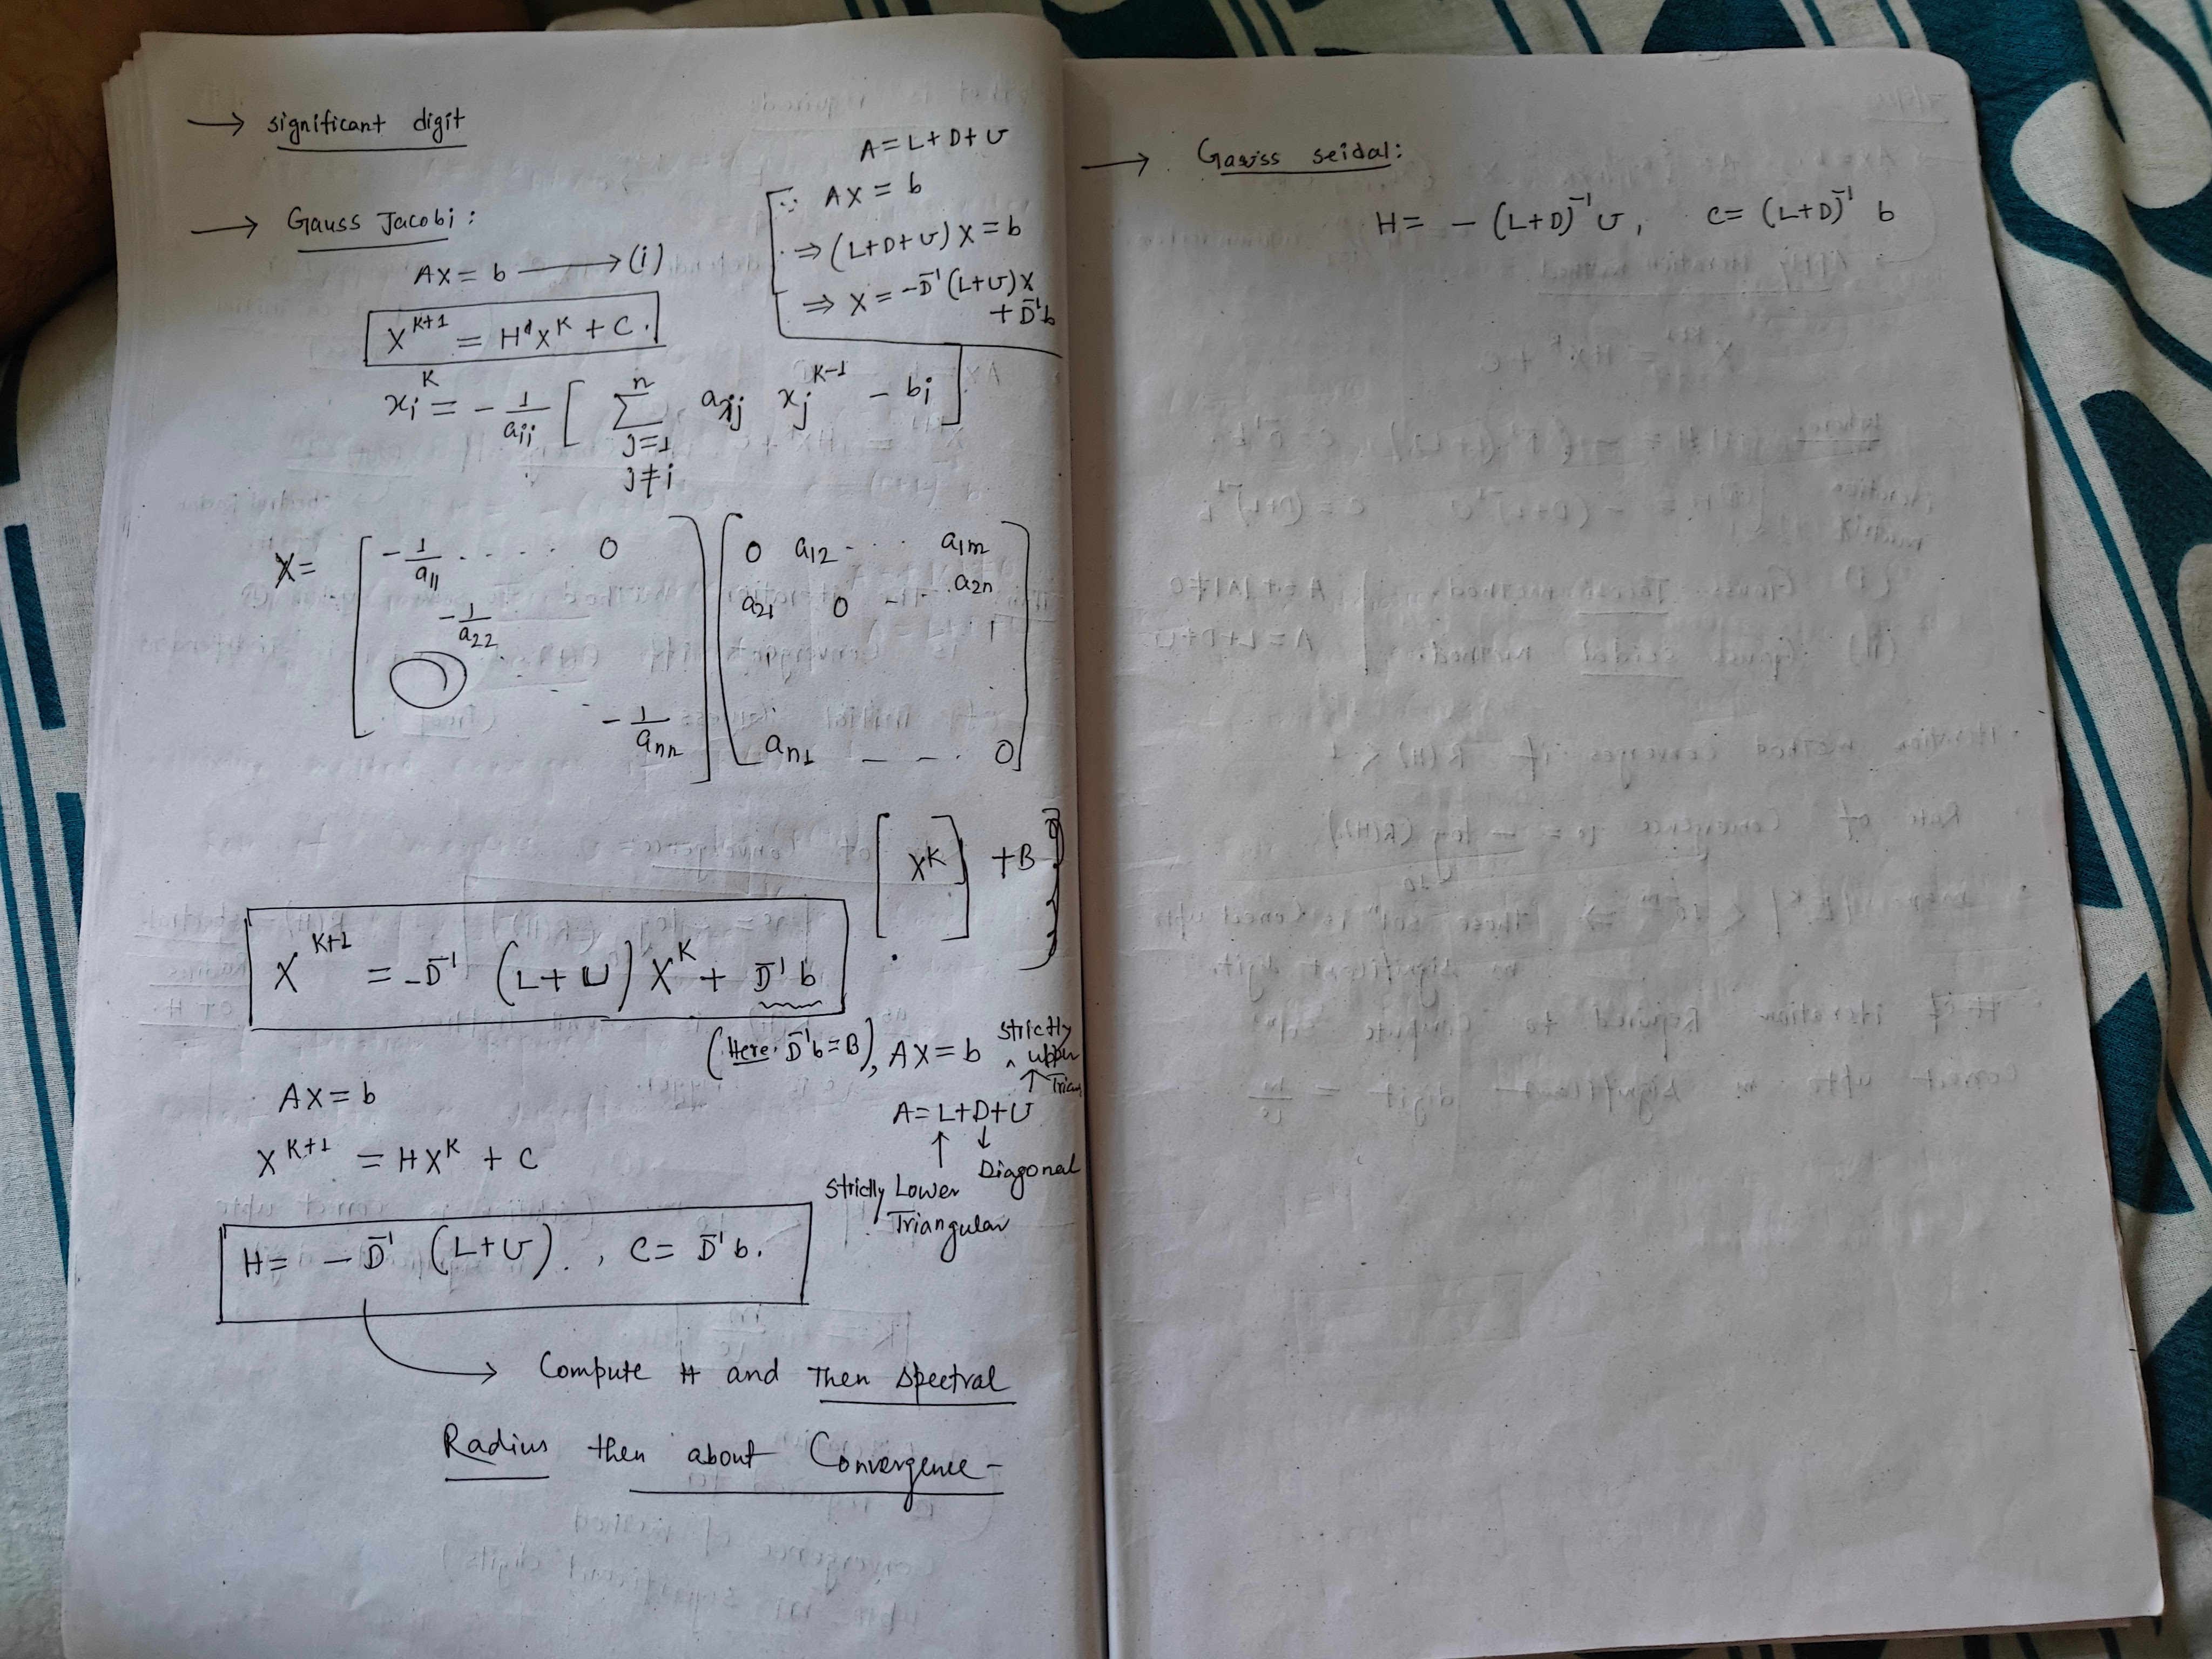 → significant digit
→ Gauss Jacobi :
AX = b → (i)
X^{K+1} = H X^K + C.
x_i^K = - 1/a_ii [ Σ_{j=1, j≠i}^{n} a_ij x_j^{K-1} - b_i ]
A = L + D + U
∵ AX = b
⇒ (L+D+U) X = b
⇒ X = -D^{-1} (L+U) X
+ D^{-1} b
X = [ -1/a_11 . . . . 0
-1/a_22
0
-1/a_nn ]
[ 0 a_12 - . . a_1m
a_21 0 - - . a_2n
a_n1 - - . 0 ]
[ X^K ] + B ]
X^{K+1} = -D^{-1} (L+U) X^K + D^{-1} b
(Here. D^{-1} b = B), AX = b
Strictly
upper
A = L+D+U
↑ ↓
Diagonal
Strictly Lower
Triangular
AX = b
X^{K+1} = H X^K + C
H = - D^{-1} (L+U) . , C = D^{-1} b.
→ Compute H and Then spectral
Radius then about Convergence -
→ Gauss seidal :
H = - (L+D)^{-1} U , C = (L+D)^{-1} b